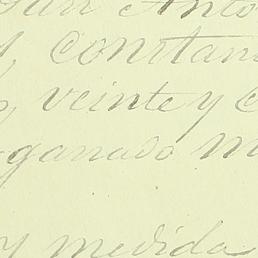 San Anto
Constan
veinte y c
ganado m
y medida